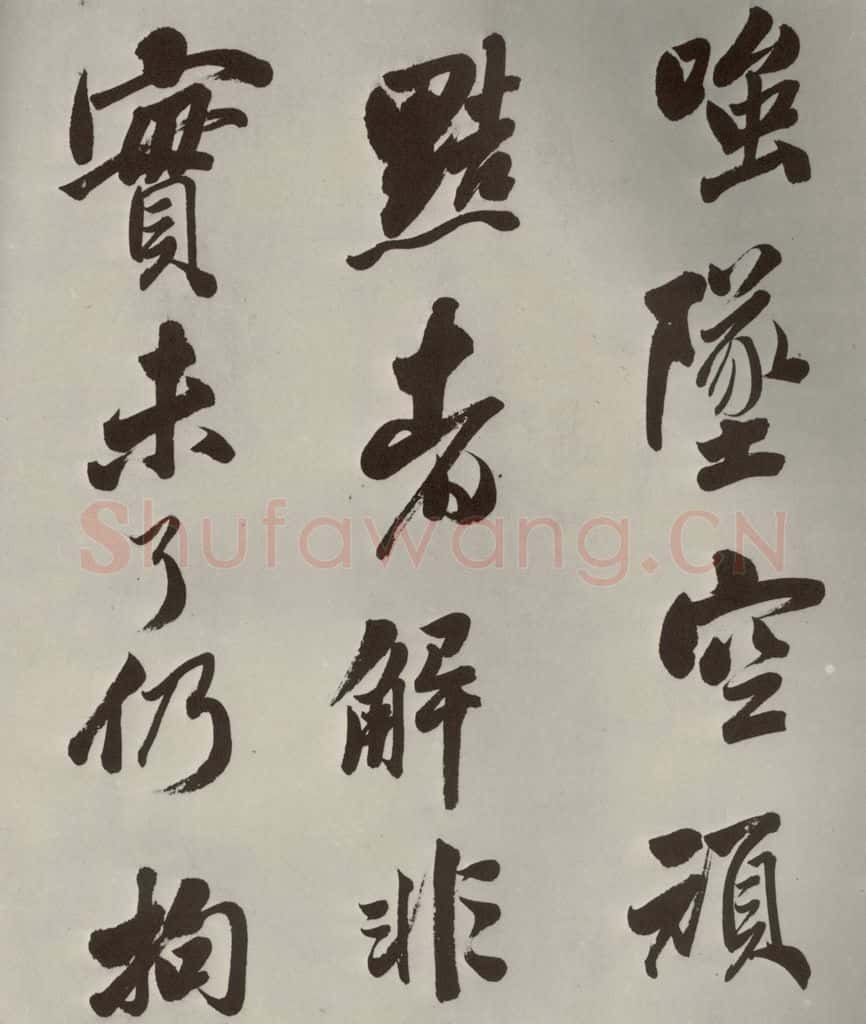 嗤墜空頑
黠者解非
實未了仍拘
Shufawang.CN